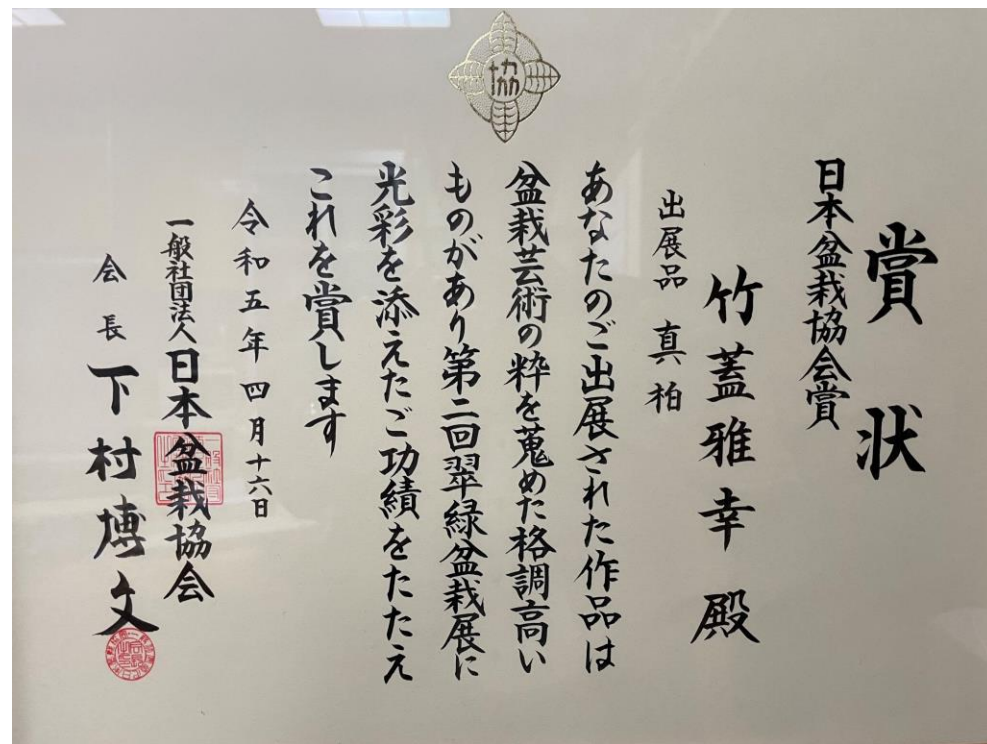 協
賞状
日本盆栽協会賞
竹蓋雅幸殿
出展品 真柏
あなたのご出展された作品は
盆栽芸術の粋を蒐めた格調高い
ものがあり第二回翠緑盆栽展に
光彩を添えたご功績をたたえ
これを賞します
令和五年四月十六日
一般社団法人日本盆栽協会
会長 下村博文